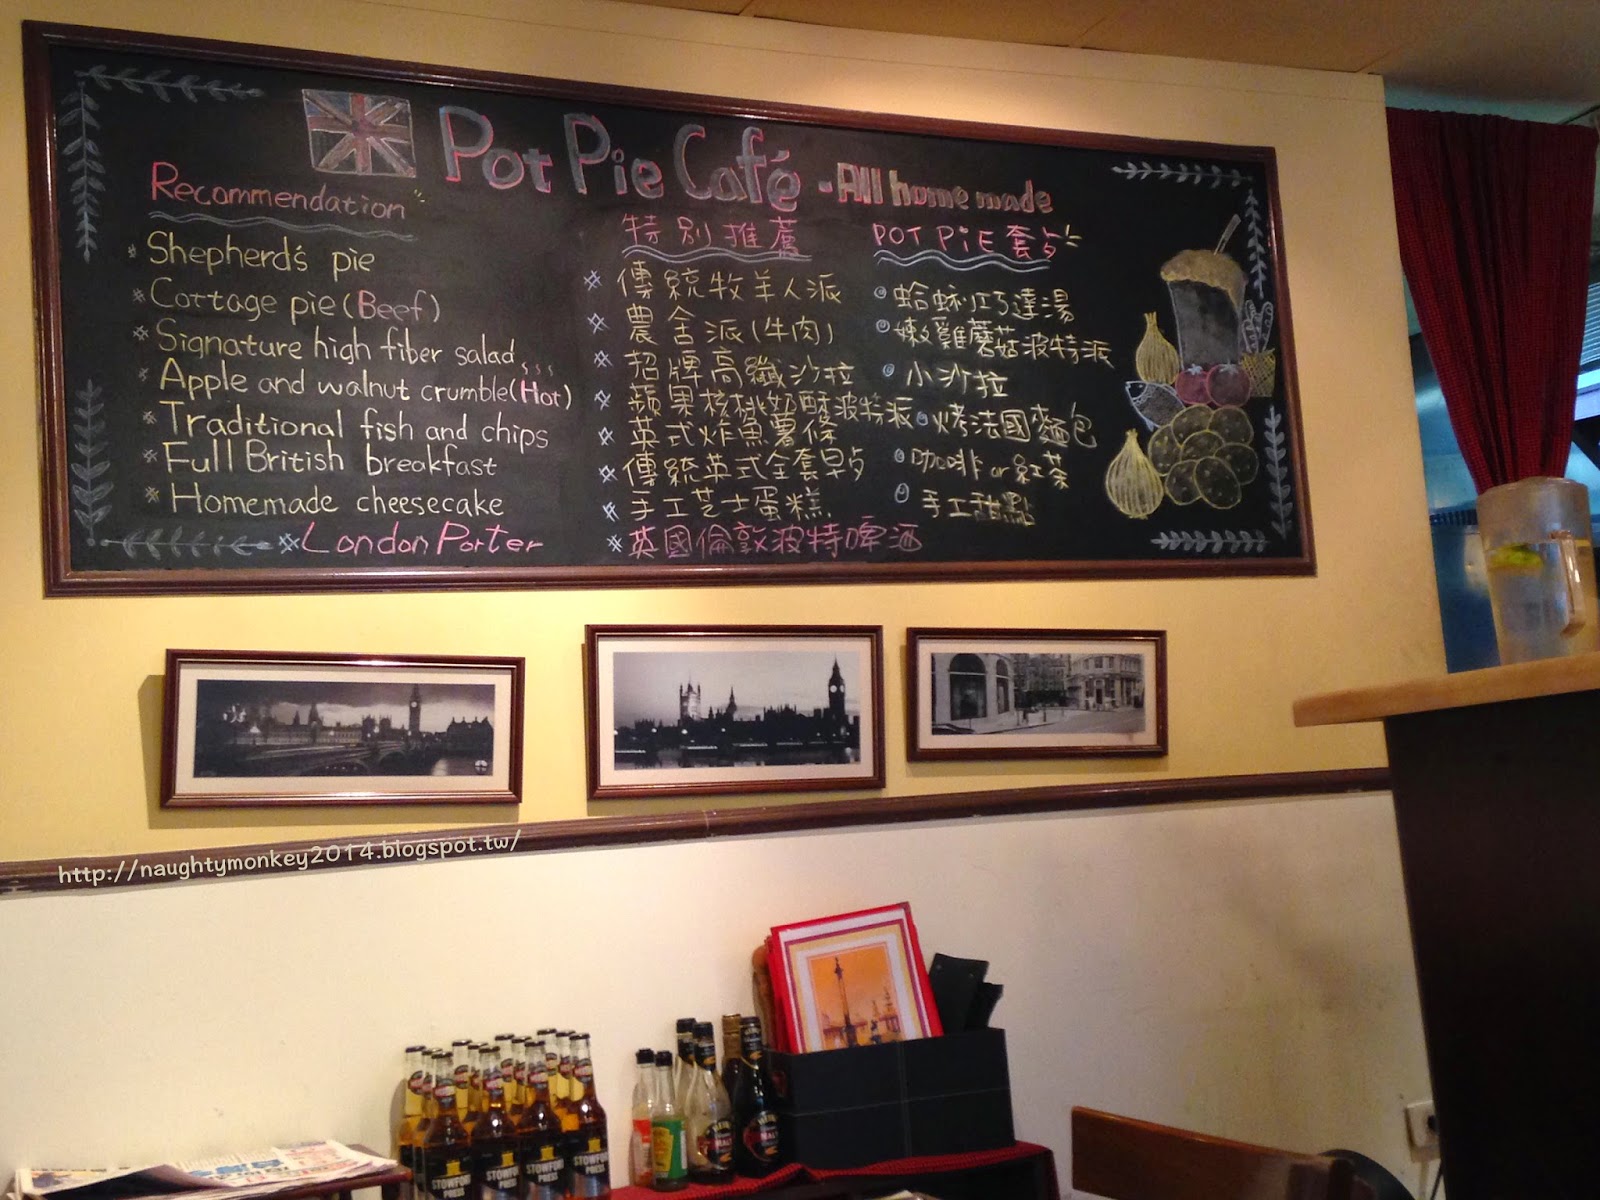 Pot Pie Café - All home made
Recommendation
Shepherd's pie
Cottage pie (Beef)
Signature high fiber salad
Apple and walnut crumble (Hot)
Traditional fish and chips
Full British breakfast
Homemade cheesecake
London Porter
特別推薦
傳統牧羊人派
農舍派(牛肉)
招牌高纖沙拉
蘋果核桃奶酥波特派
英式炸魚薯條
傳統英式全套早点
手工芝士蛋糕
英國倫敦波特啤酒
POT PiE 套
蛤蜊巧達湯
嫩雞蘑菇波特派
小沙拉
烤法國麵包
咖啡or紅茶
手工甜點
http://naughtymonkey2014.blogspot.tw/
STOWFORD PRESS
STOWFORD PRESS
STOWFORD PRESS
STOWFORD PRESS